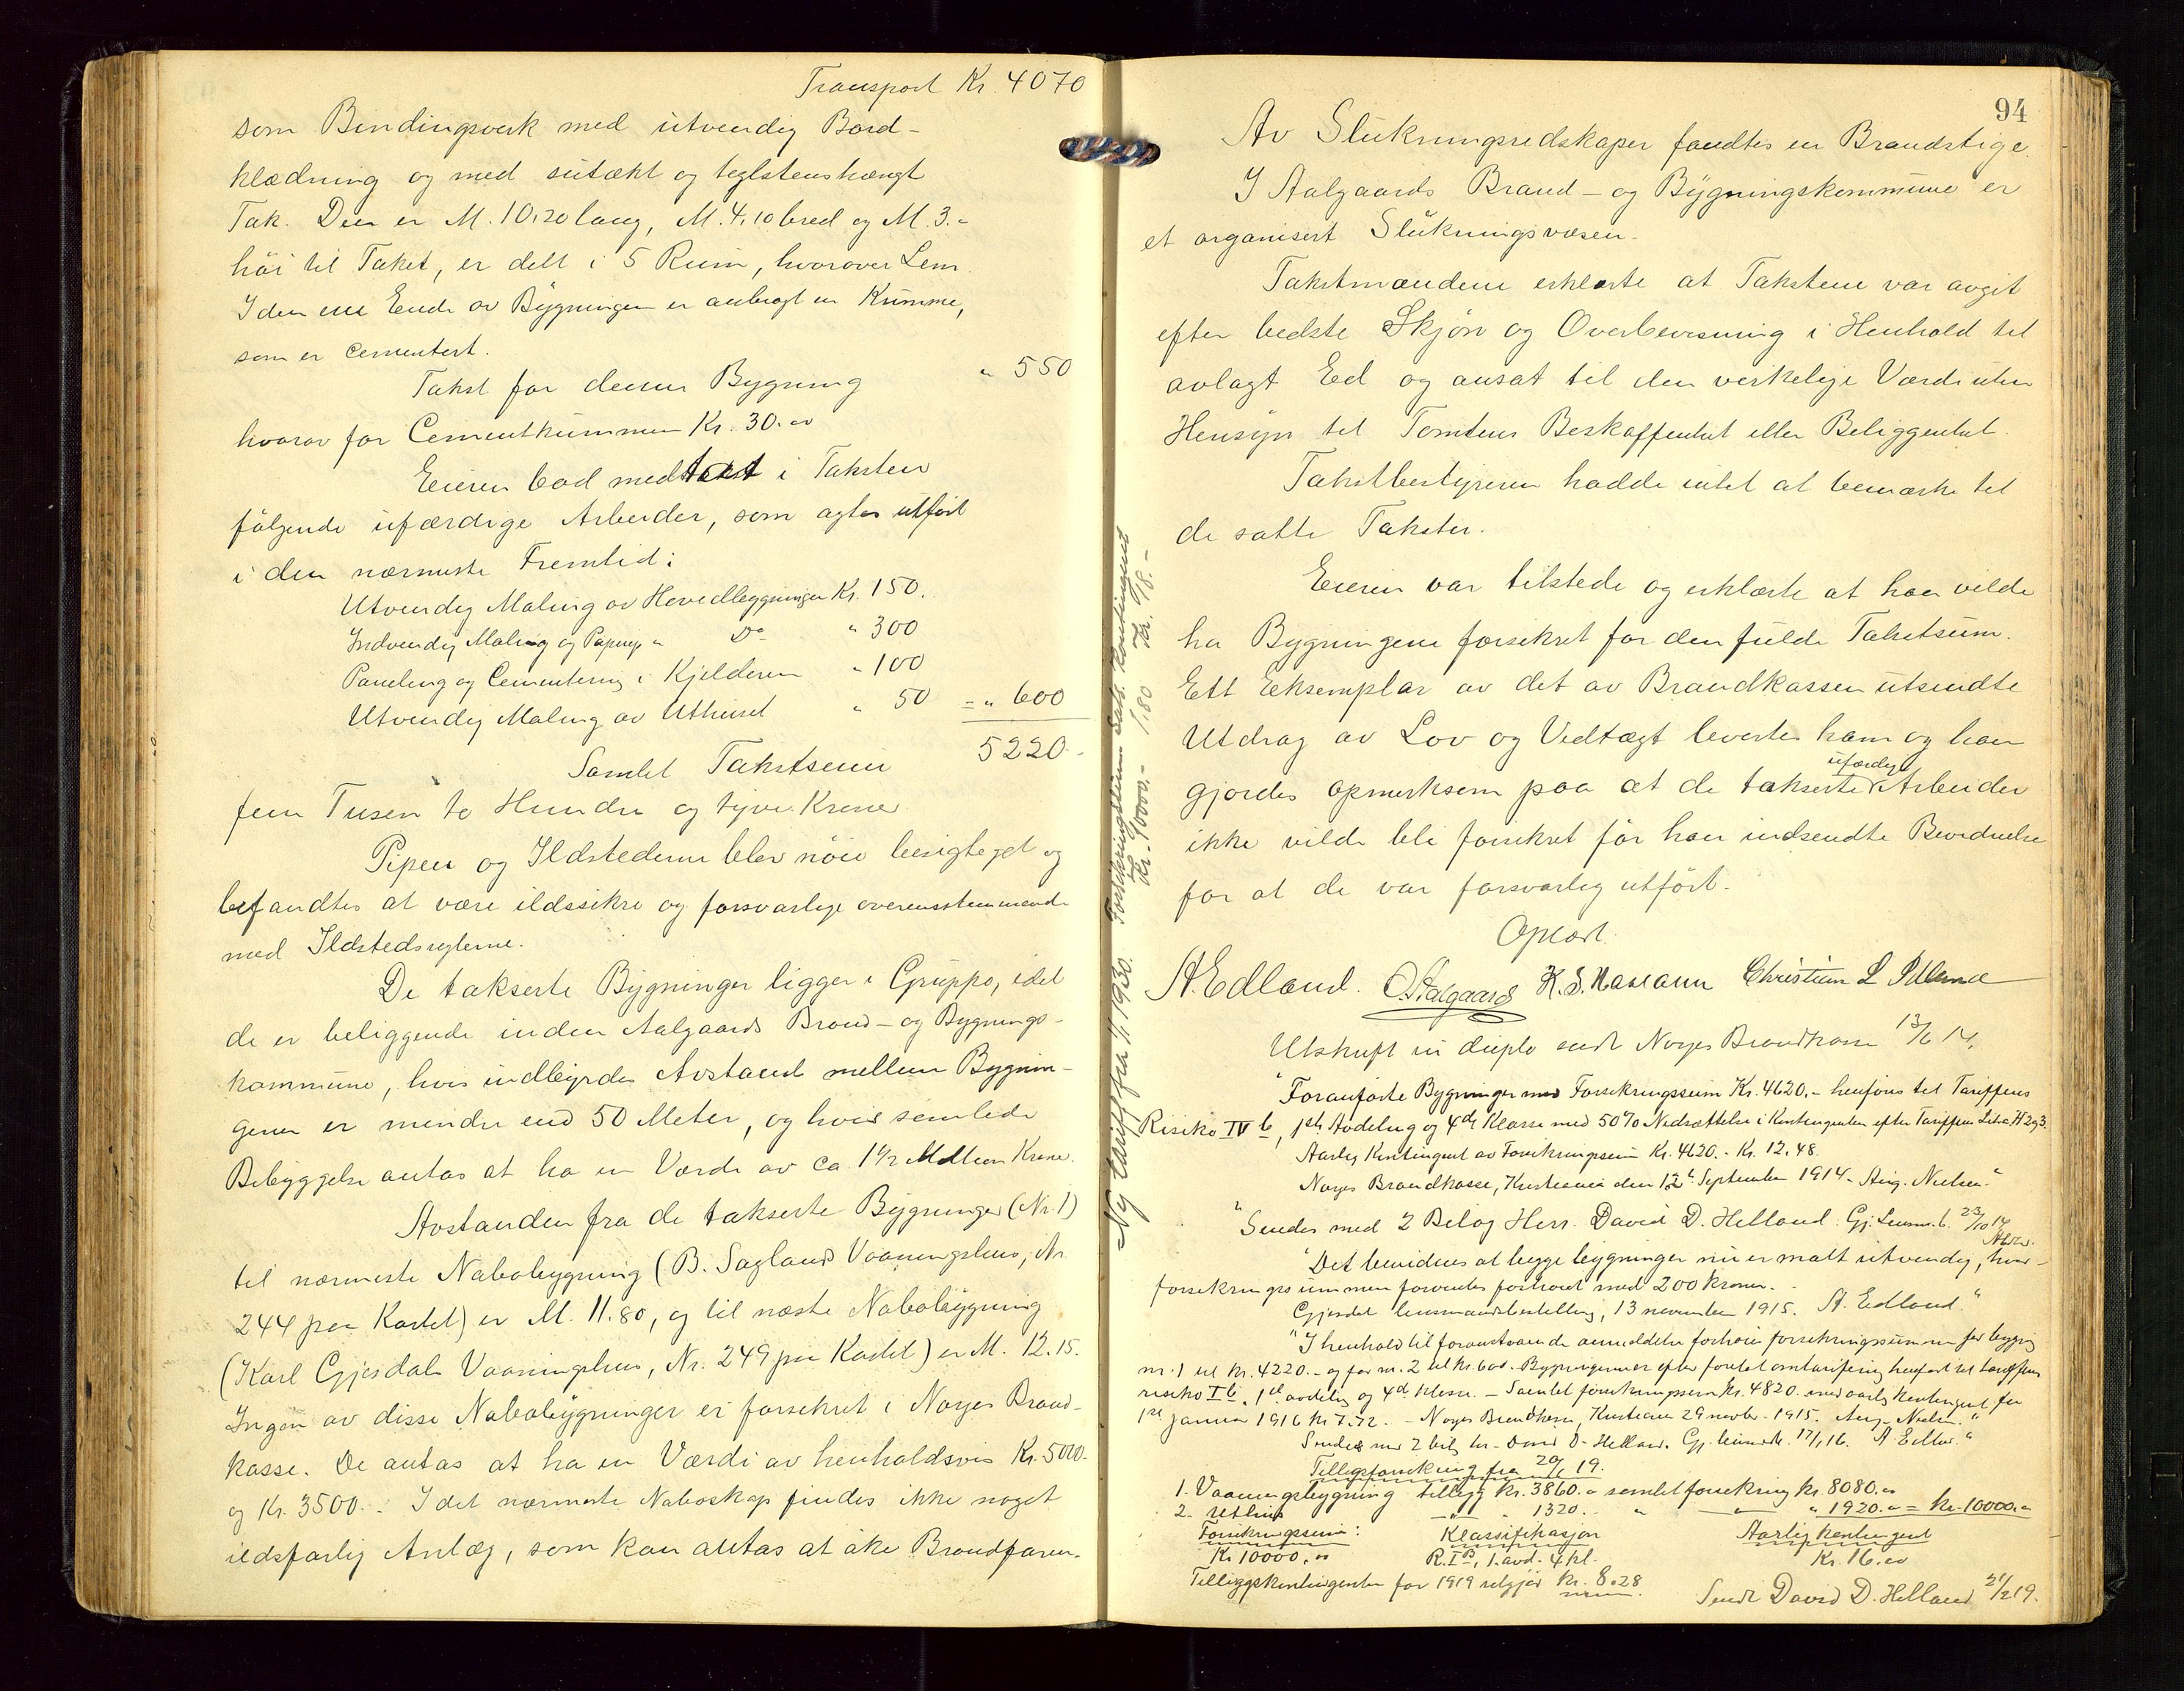 Transport Kr. 4070
som Bindingsverk med utvendig Bord-
klædning og med sutækt og teglstenshængt
Tak. Den er M. 10,20 lang, M. 4,10 bred og M. 3.-
höi til Taket, er delt i 5 Rum, hvorover Lem.
I den ene Ende av Bygningen er anbragt en Kumme,
som er cementert.
Takst for denne Bygning " 550
hvorav for Cementkummen Kr. 30.00
Eieren bad medtat i Taksten
følgende ufærdige Arbeider, som agtes utført
i den nærmeste Fremtid:
Utvendig Maling av Hovedbygningen Kr. 150.
Indvendig Maling og Papring " Do " 300
Paneling og Cementering i Kjelderen " 100
Utvendig Maling av Uthuset " 50 = " 600
Samlet Takstsum 5220-
fem Tusen to Hundre og tyve Kroner
Pipen og Ildstederne blev nöie besigtiget og
befandtes at være ildssikre og forsvarlige overensstemmende
med Ildstedsreglerne.
De takserte Bygninger ligger i Gruppe, idet
de er beliggende inden Aalgaards Brand- og Bygnings-
kommune, hvis indbyrdes Avstand mellem Bygnin-
gene er mindre end 50 Meter, og hvis samlede
Bebyggelse antas at ha en Værdi av ca. 1½ Million Kroner.
Avstanden fra de takserte Bygninger (Nr. 1)
til nærmeste Nabobygning (B. Saglands Vaaningshus, Nr.
244 paa Kartet) er M. 11.80, og til næste Nabobygning
(Karl Gjesdals Vaaningshus, Nr. 249 paa Kartet) er M. 12.15.
Ingen av disse Nabobygninger er forsikret i Norges Brand-
kasse. De antas at ha en Værdi av henholdsvis Kr. 5000.-
og Kr. 3500.- I det nærmeste Naboskap findes ikke noget
ildsfarlig Anlæg, som kan antas at øke Brandfaren.
94
Av Slukningsredskaper fandtes en Brandstige.
I Aalgaards Brand- og Bygningskommune er
et organisert Slukningsvæsen.
Takstmændene erklærte at Taksten var avgit
efter bedste Skjøn og Overbevisning i Henhold til
avlagt Ed og ansat til den virkelige Værdi uten
Hensyn til Tomtens Beskaffenhet eller Beliggenhet.
Takstbestyreren hadde intet at bemærke til
de satte Takster.
Eieren var tilstede og erklærte at han vilde
ha Bygningene forsikret for den fulde Takstsum.
Ett Eksemplar av det av Brandkassen utsendte
Utdrag av Lov og Vedtægt levertes ham og han
gjordes opmerksom paa at de takserte ufærdige Arbeider
ikke vilde bli forsikret før han indsendte Bevidnelse
for at de var forsvarlig utført.
Oplæst.
A. Edland. O. Aalgaard K. S. Christian L.
Utskrift in duplo sendt Norges Brandkasse 13/6 14.
"Foranførte Bygninger med Forsikringssum Kr. 4620.- henføres til Tariffens
Risiko IV b, 1ste Avdeling og 4de Klasse med 50% Nedsættelse i Kontingenten efter Tariffens Litra H 2 og 3.
Aarlig Kontingent av Forsikringssum Kr. 4620.- Kr. 12.48.
Norges Brandkasse, Kristiania den 12te September 1914. Aug. Nielsen."
"Sendes med 2 Bilag Herr David D. Helland. Gj. Lensm.b. 23/10 14
"Det bevidnes at begge bygninger nu er malt utvendig, hvor-
forsikringssummen forventes forhøiet med 200 kroner.-
Gjesdal lensmandsbestilling, 13 november 1915. A. Edland."
"I henhold til foranstaaende anmeldelse forhøies forsikringssummen for bygning
nr. 1 til kr. 4220.- og for nr. 2 til kr. 600.- Bygningerne er efter foretat omtarifering henført til tariffens
risiko I b, 1ste avdeling og 4de klasse. - Samlet forsikringssum kr. 4820.- med aarlig kontingent fra
1ste januar 1916 kr. 7.72. - Norges Brandkasse, Kristiania 29 novbr. 1915. Aug. Nielsen."
Sendes med 2 bilag hr. David D. Helland. Gj. lensm.b. 17/1 16. A. Edland."
Tillegsforsikring fra 20/1 19.
1. Vaaningsbygning tillegg kr. 3860.00 samlet forsikring kr. 8080.00
2. Uthus " 1320.- " " 1920.00 = kr. 10000.00
Forsikringssum: Klassifikasjon Aarlig kontingent
Kr 10000.00 R. I B, 1. avd. 4 kl. Kr. 16.00
Tilleggskontingenten for 1919 utgjør kr. 8.28
Sendt David D. Helland 21/2 19.
Ny tariff fra 1/1 1930. Forsikringssum Sats Kontingent
Kr. 10000.- 1.80 Kr. 18.-